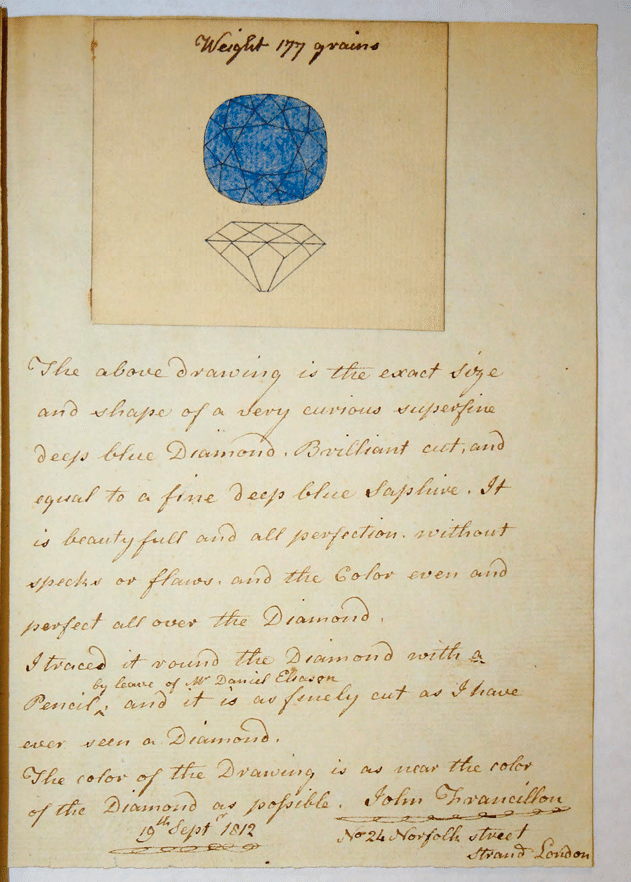 Weight 177 grains
The above drawing is the exact size
and shape of a very curious superfine
deep blue Diamond. Brilliant cut, and
equal to a fine deep blue Saphire. It
is beautyfull and all perfection. without
specks or flaws. and the Color even and
perfect all over the Diamond.
I traced it round the Diamond with a
by leave of Mr Daniel Eliason
Pencil ‸ and it is as finely cut as I have
ever seen a Diamond.
The color of the Drawing is as near the color
of the Diamond as possible. John Francillon
19th Septr 1812 No 24 Norfolk street
Strand London